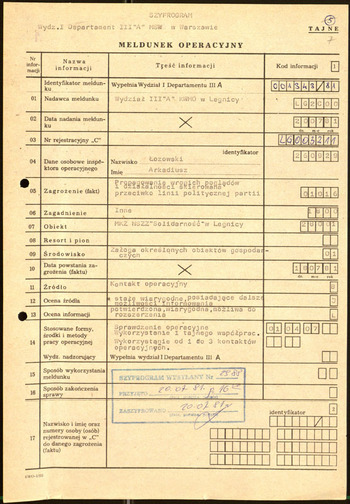 SZYFROGRAM
Wydz.I Departament III"A" MSW w Warszawie
TAJNE
MELDUNEK OPERACYJNY
Nr informacji
Nazwa informacji
Treść informacji
Kod informacji
1
Identyfikator meldunku
Wypełnia Wydział I Departamentu III A
01
Nadawca meldunku
Wydział III"A" KWMO w Legnicy
LG2000
02
Data nadania meldunku
200781
03
Nr rejestracyjny „C”
04
Dane osobowe inspektora operacyjnego
identyfikator
Nazwisko
Łozowski
Imię
Arkadiusz
05
Zagrożenie (fakt)
Propagowanie wrogich poglądów
i działalności skierowane
przeciwko linii politycznej partii
06
Zagadnienie
Inne
07
Obiekt
MKZ NSZZ"Solidarność"w Legnicy
08
Resort i pion
09
Środowisko
Załoga określonych obiektów gospodarczych
01
10
Data powstania zagrożenia (faktu)
180781
11
Źródło
Kontakt operacyjny
12
Ocena źródła
stałe wiarygodne, posiadające dalsze
możliwości informowania
13
Ocena informacji
potwierdzona, wiarygodna, możliwa do
rozszerzenia
14
Stosowane formy, środki i metody pracy operacyjnej
Sprawdzenie operacyjne
Wykorzystanie i tajnego współprac.
Wykorzystanie od 1 do 3 kontaktów
operacyjnych.
010407
Wydz. nadzorujący
Wypełnia Wydział I Departamentu III A
15
Sposób wykorzystania meldunku
16
Sposób zakończenia sprawy
SZYFROGRAM WYSŁANY Nr
PRZYJĘTO
20.07.81
ZASZYFROWANO
20.07.81
17
Nazwisko i imię oraz numery osoby (osób) rejestrowanej w „C” do danego zagrożenia (faktu)
identyfikator
2